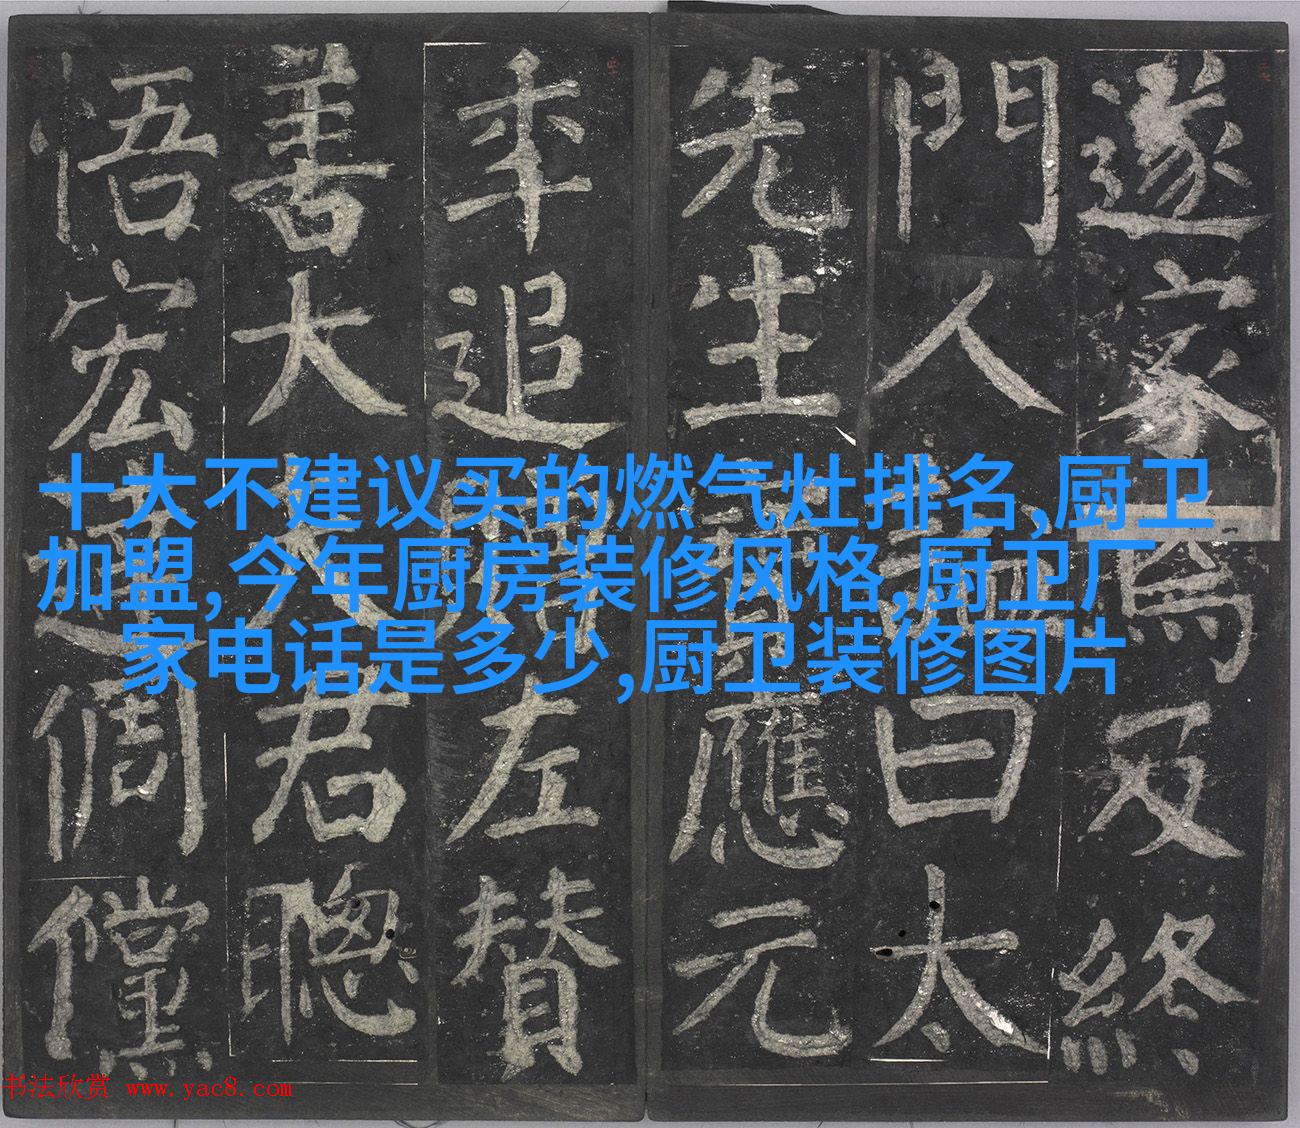 十大不建议买的燃气灶排名,厨卫
加盟,今年厨房装修风格,厨卫厂
家电话是多少,厨卫装修图片
遂家焉及終
門人曰太
先生應元
年追左贊
善大君聰
悟宏倜儻
书法欣赏 www.yac8.com